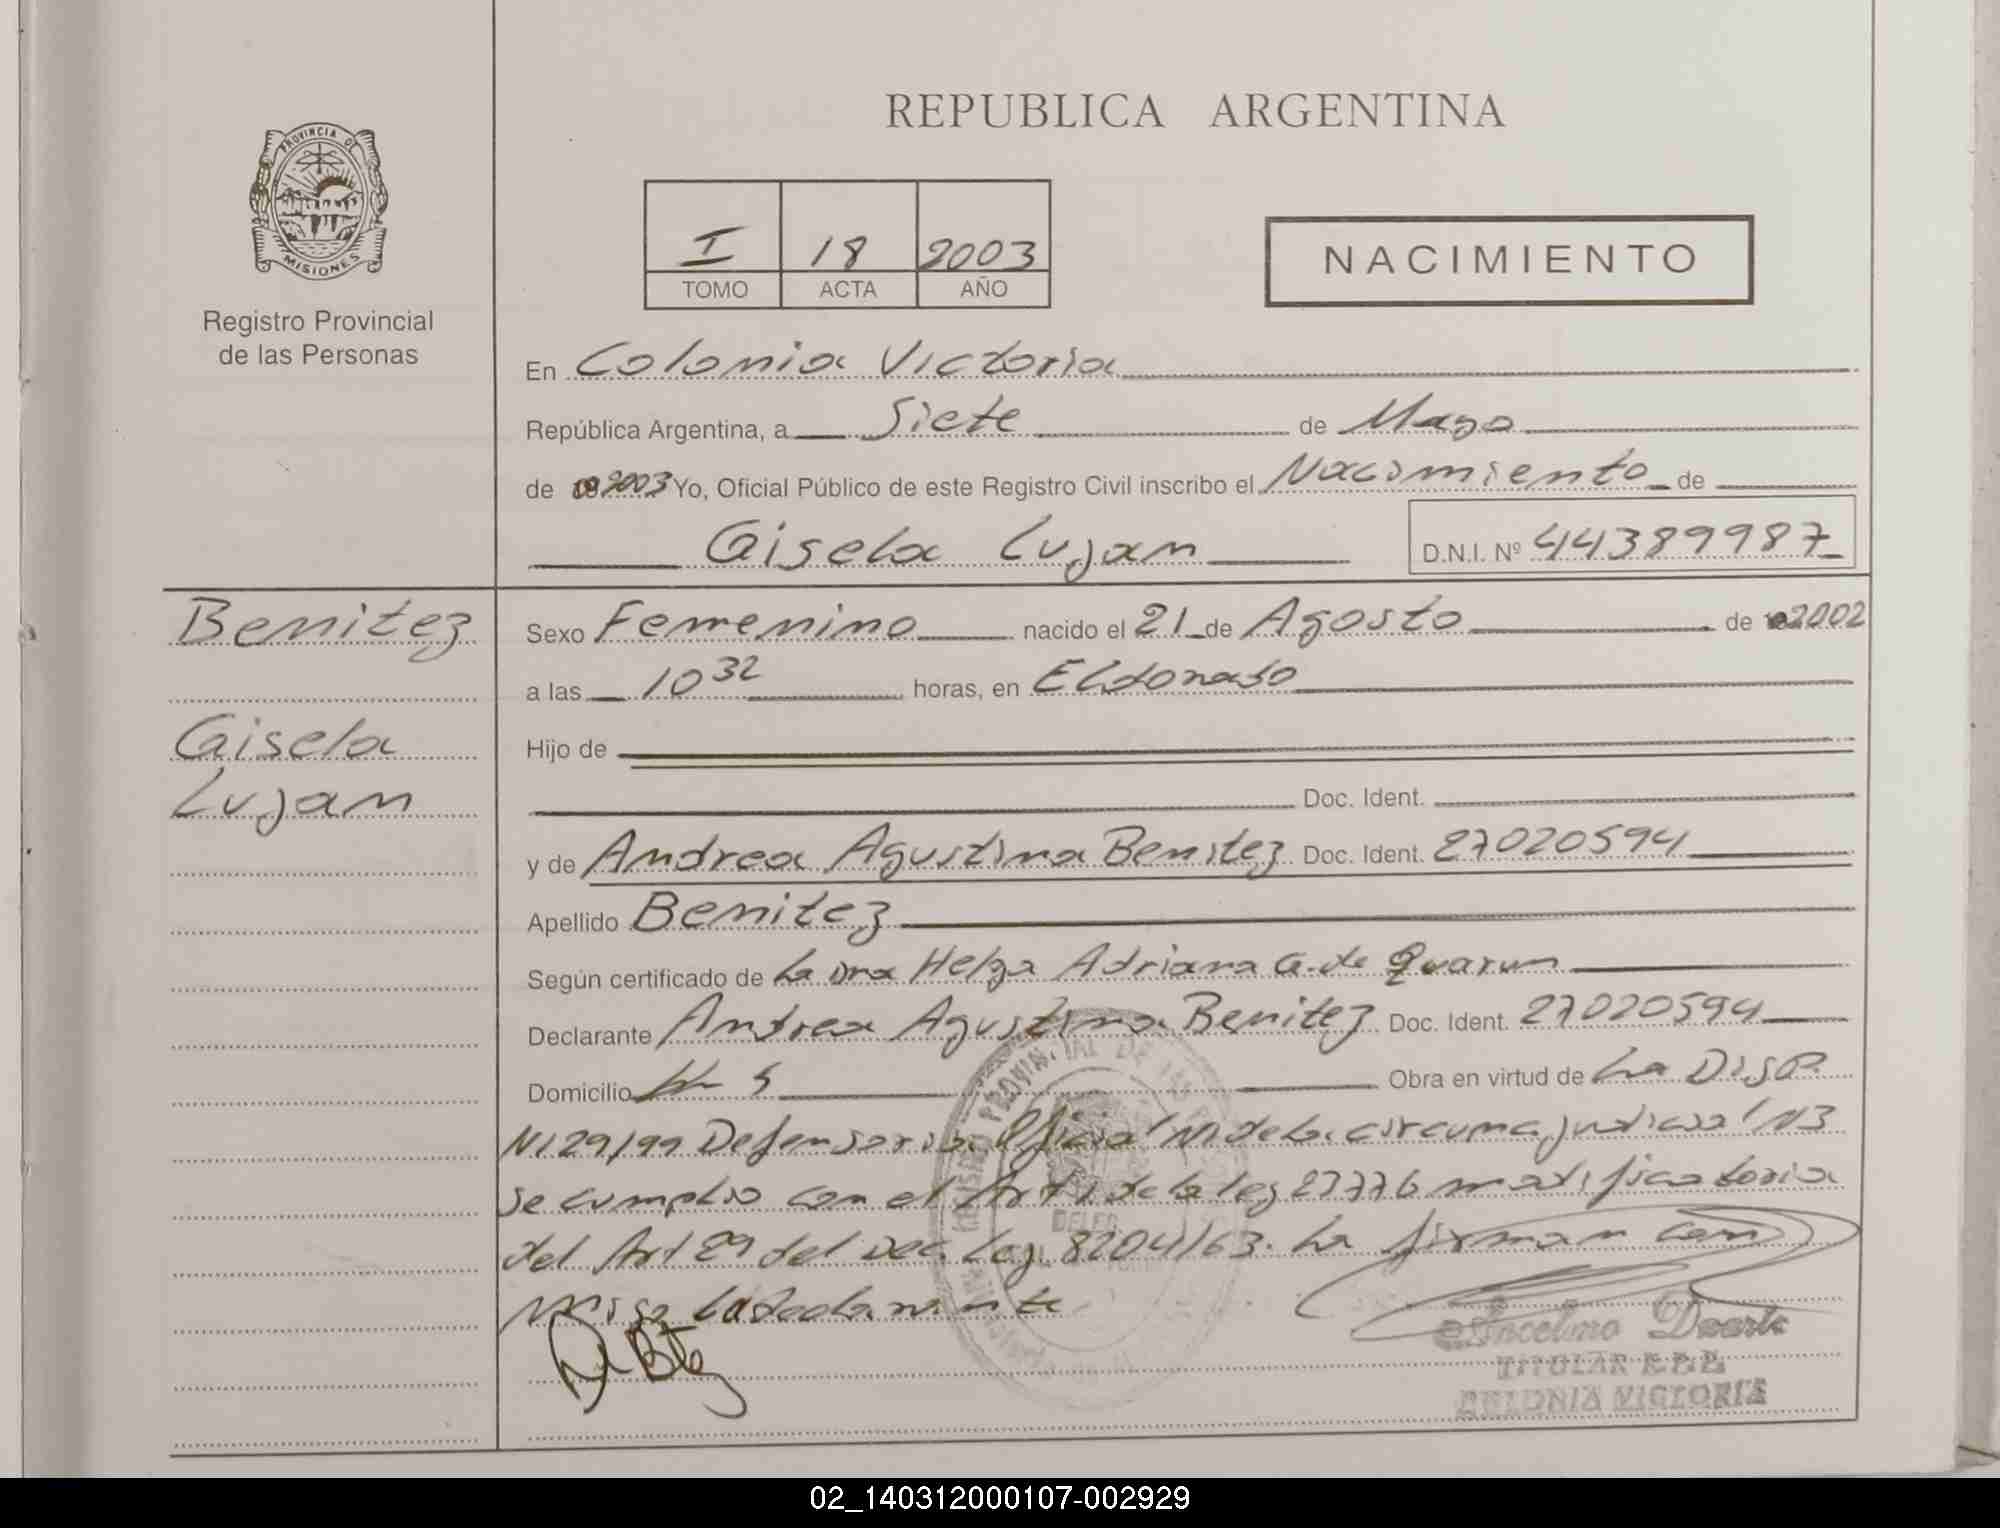 REPUBLICA ARGENTINA
PROVINCIA DE
MISIONES
Registro Provincial
de las Personas
I 18 2003
TOMO ACTA AÑO
NACIMIENTO
En Colonia Victoria
República Argentina, a Siete de Mayo
de 2003 Yo, Oficial Público de este Registro Civil inscribo el Nacimiento de
Gisela Lujan D.N.I. Nº 44389987
Benitez
Gisela
Lujan
Sexo Femenino nacido el 21 de Agosto de 2002
a las 10 32 horas, en Eldorado
Hijo de
Doc. Ident.
y de Andrea Agustina Benitez Doc. Ident. 27020594
Apellido Benitez
Según certificado de La Dra Helga Adriana G. de
Declarante Andrea Agustina Benitez Doc. Ident. 27020594
Domicilio Obra en virtud de La Disp.
N 129/99 Defensoria Oficial de la judicial N3
se cumplio con el Art 1 de la ley 23776 modificatoria
del Art 29 del Dec. Ley. 8204/63. La firman con
la declarante
Ancelmo Duarte
TITULAR R.P.P.
COLONIA VICTORIA
02_140312000107-002929